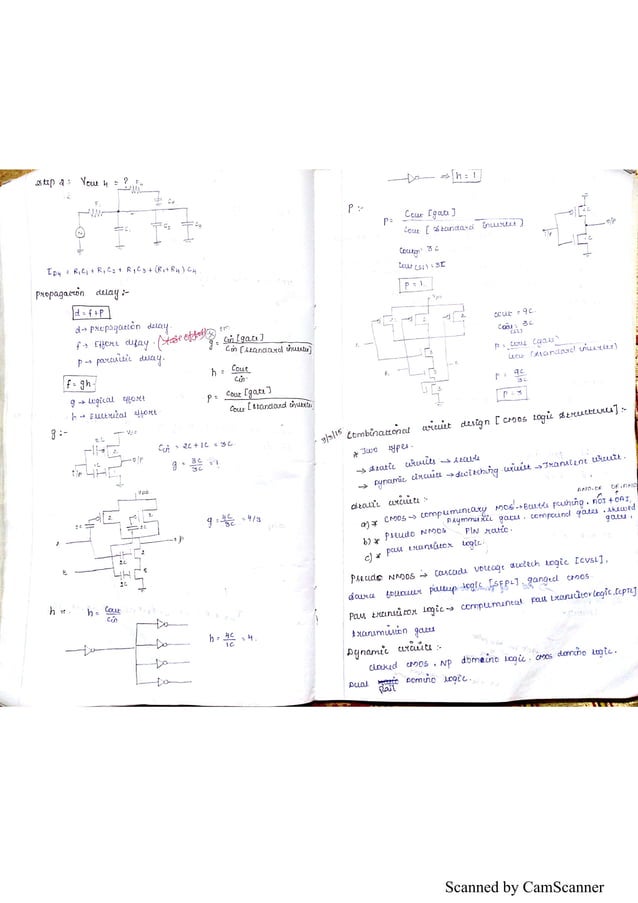 Step 2: Vout 4 = ?
R4
R1
C1
C2
C4
τD4 = R1C1 + R1C2 + R1C3 + (R1+R4) C4
Propagation delay :-
d = f+P
d → propagation delay.
f → Effort delay.
P → parasitic delay.
f = gh
g → logical effort
h → Electrical effort
g = Cin [gate] / Cin [standard inverter]
h = Cout / Cin
P = Cout [gate] / Cout [standard inverter]
g :-
2C
VDD
I/P
O/P
Cin = 2C+1C = 3C
g = 3C/3C = 1
VDD
2C
2
2
2C
2C
g = 4C/3C = 4/3
h :-
h = Cout / Cin
h = 4C/1C = 4.
⇒ h = 1
P :-
P = Cout [gate] / Cout [standard Inverter]
Cout(g) = 3C
P = 1
I/P
O/P
VDD
Cout = 9C
3C
P = Cout (gate) / Cout (standard Inverter)
P = 9C/3C
P = 3
Combinational circuit design [CMOS logic Structures] :-
* Two types.
→ static circuits → static
→ Dynamic circuits → switching circuit → Transient circuit.
Static circuits :-
a) * CMOS → complementary MOS → Bubble pushing, AOI + OAI,
Asymmetric gates, compound gates, skewed gates
P/N ratio.
b) * Pseudo NMOS
c) * pass transistor logic.
Pseudo NMOS → cascade voltage switch logic [CVSL],
source follower pullup logic [SFPL], ganged CMOS.
Pass transistor logic → complemental pass transistor logic, [CPTL]
transmission gates
Dynamic circuits :-
clocked CMOS, NP domino logic, CMOS domino logic.
Dual Rail Domino logic.
Scanned by CamScanner